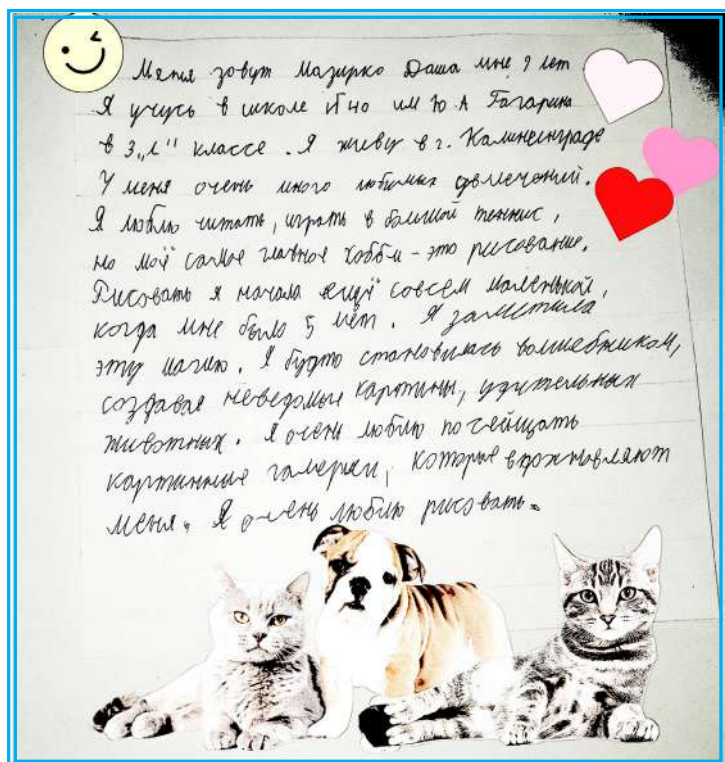 Меня зовут Мазирко Даша мне 9 лет
Я учусь в школе им Ю.А Гагарина
в 3 „Л" классе. Я живу в г. Калининграде
У меня очень много любимых увлечений.
Я люблю читать, играть в большой теннис,
но моё самое главное хобби - это рисование.
Рисовать я начала ещё совсем маленькой,
когда мне было 5 лет. Я заметила
эту магию. Я будто становилась волшебником,
создавая неведомые картины, удительных
животных. Я очень люблю посещать
картинные галереи, которые вдохновляют
меня. Я очень люблю рисовать.